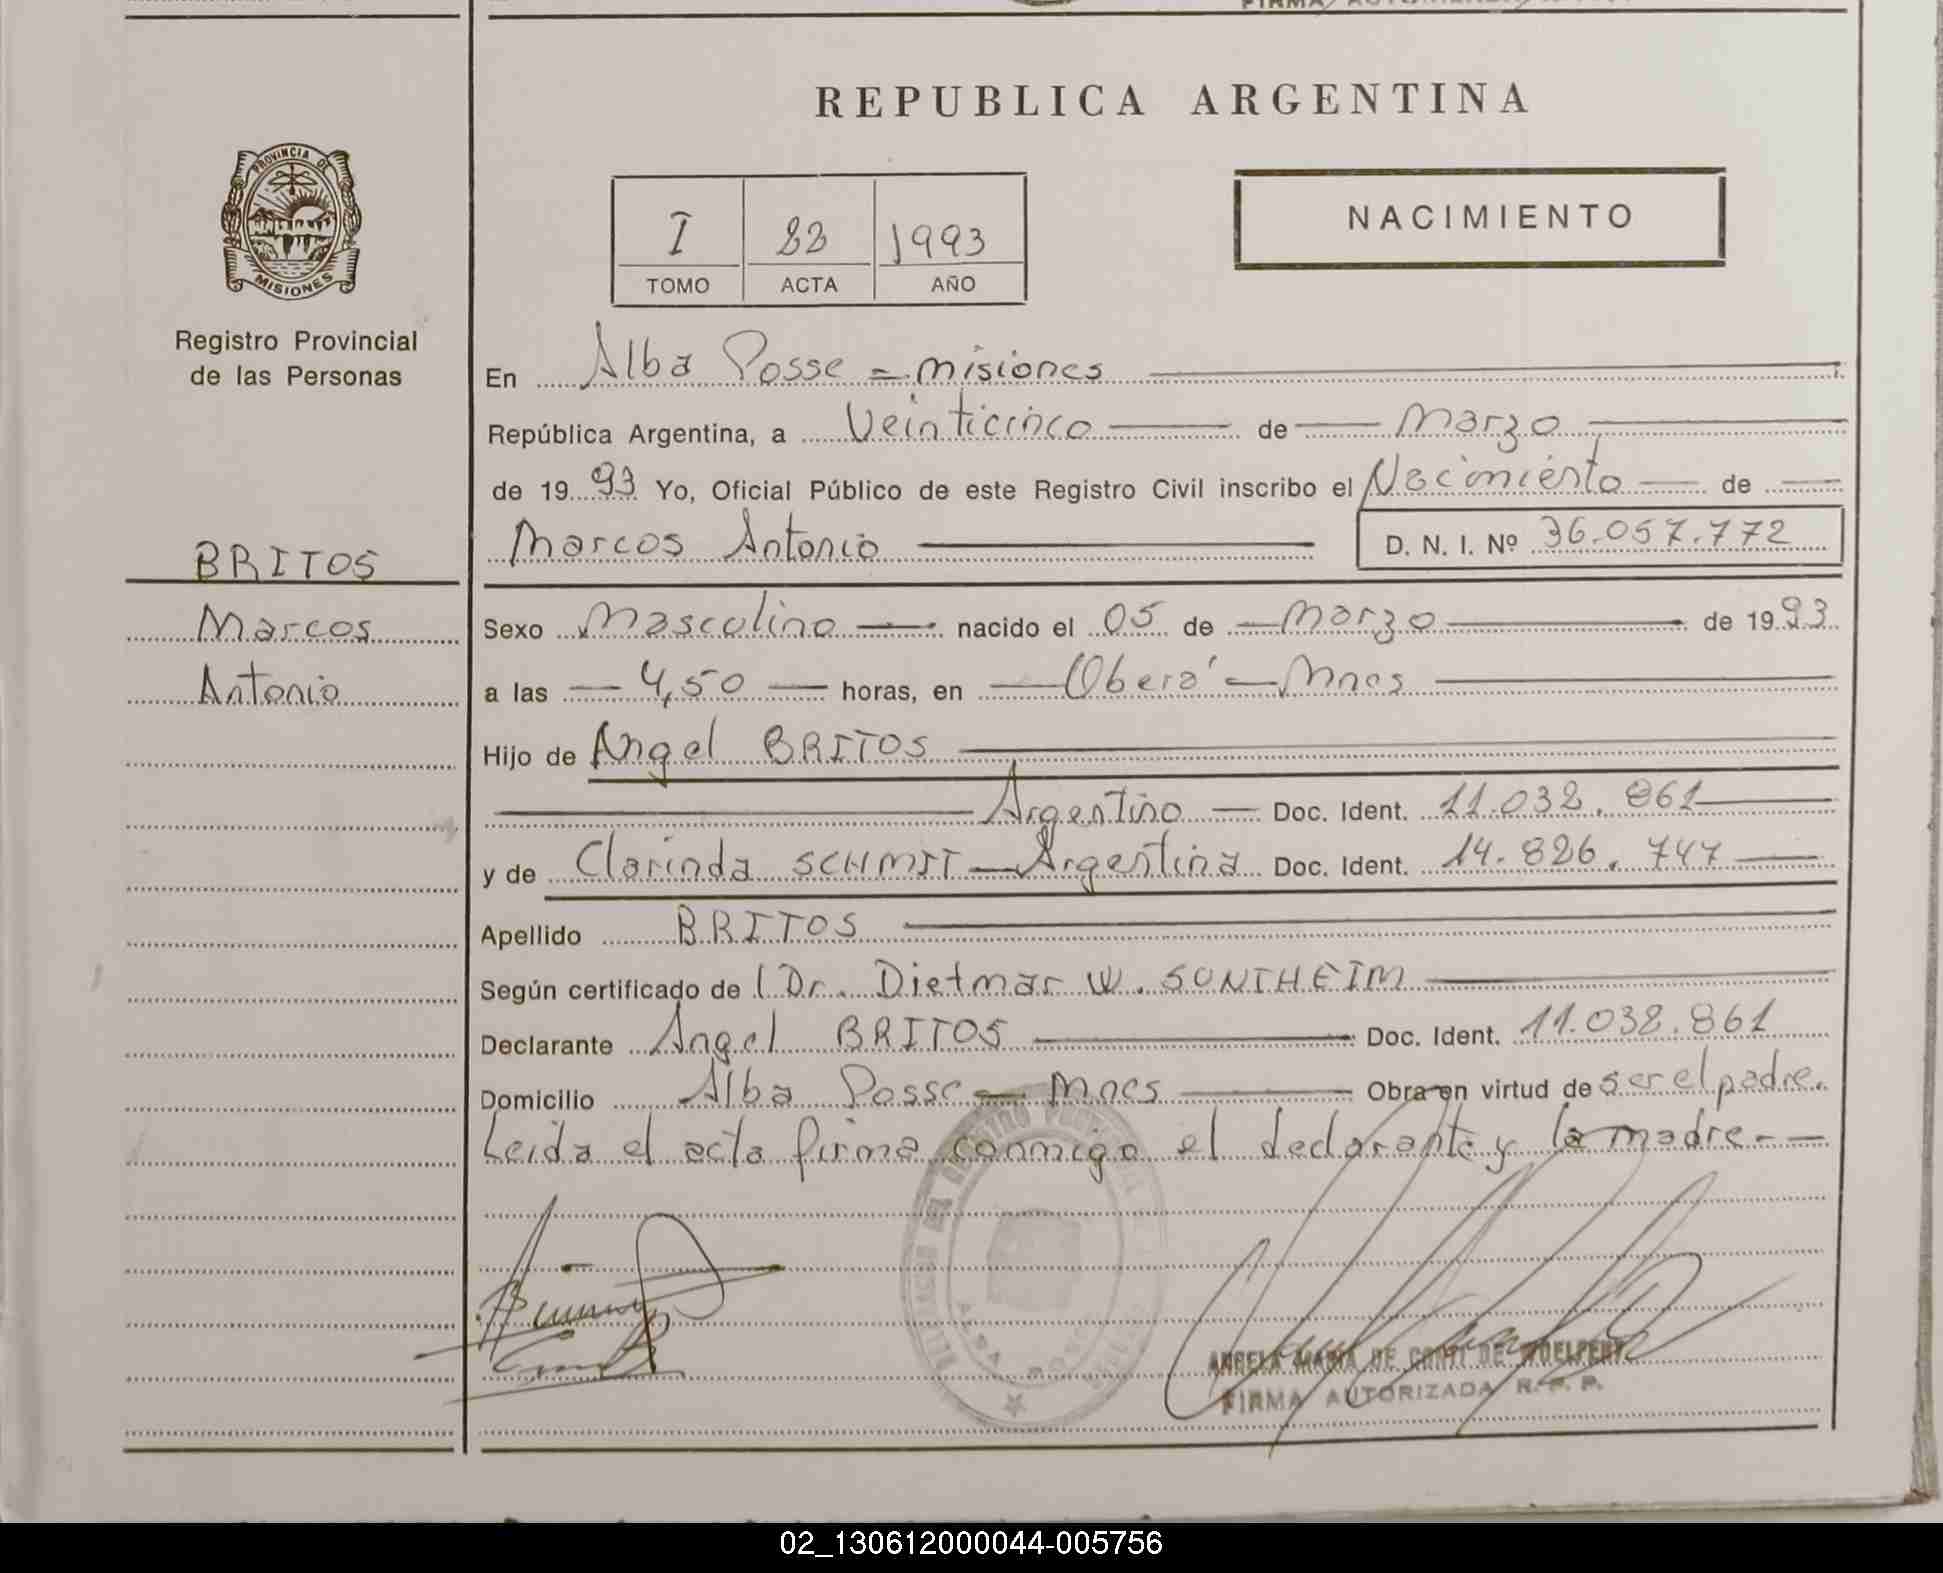 PROVINCIA DE
MISIONES
Registro Provincial
de las Personas
BRITOS
Marcos
Antonio
REPUBLICA ARGENTINA
I
TOMO
ACTA
1993
AÑO
NACIMIENTO
En Alba Posse = misiones
República Argentina, a Veinticinco de Marzo
de 19 93 Yo, Oficial Público de este Registro Civil inscribo el Nacimiento de
Marcos Antonio D. N. I. Nº 36.057.772
Sexo Masculino nacido el 05 de Marzo de 19 93
a las 4,50 horas, en Oberá - Mnes
Hijo de Angel BRITOS
Argentino Doc. Ident. 11.032.861
y de Clarinda SCHMIT Argentina Doc. Ident. 14.826.747
Apellido BRITOS
Según certificado de l Dr. Dietmar W. SONTHEIM
Declarante Angel BRITOS Doc. Ident. 11.032.861
Domicilio Alba Posse - Mnes Obra en virtud de ser el padre.
Leida el acta firma conmigo el declarante y la madre - -
ANGELA MARIA DE CONTI DE WOELPERT
FIRMA AUTORIZADA R. P. P.
02_130612000044-005756